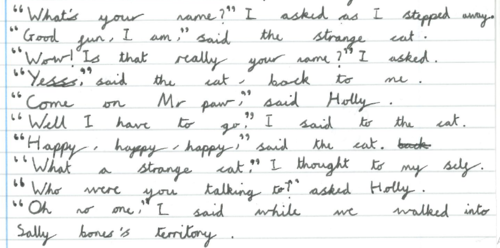 “What's your name?” I asked as I stepped away.
“Good fun, I am,” said the strange cat.
“Wow! Is that really your name?” I asked.
“Yesss,” said the cat, back to me.
“Come on Mr paw,” said Holly.
“Well I have to go,” I said to the cat.
“Happy, happy, happy,” said the cat. back
“What a strange cat,” I thought to my self.
“Who were you talking to?” asked Holly.
“Oh no one,” I said while we walked into
Sally bones's territory.